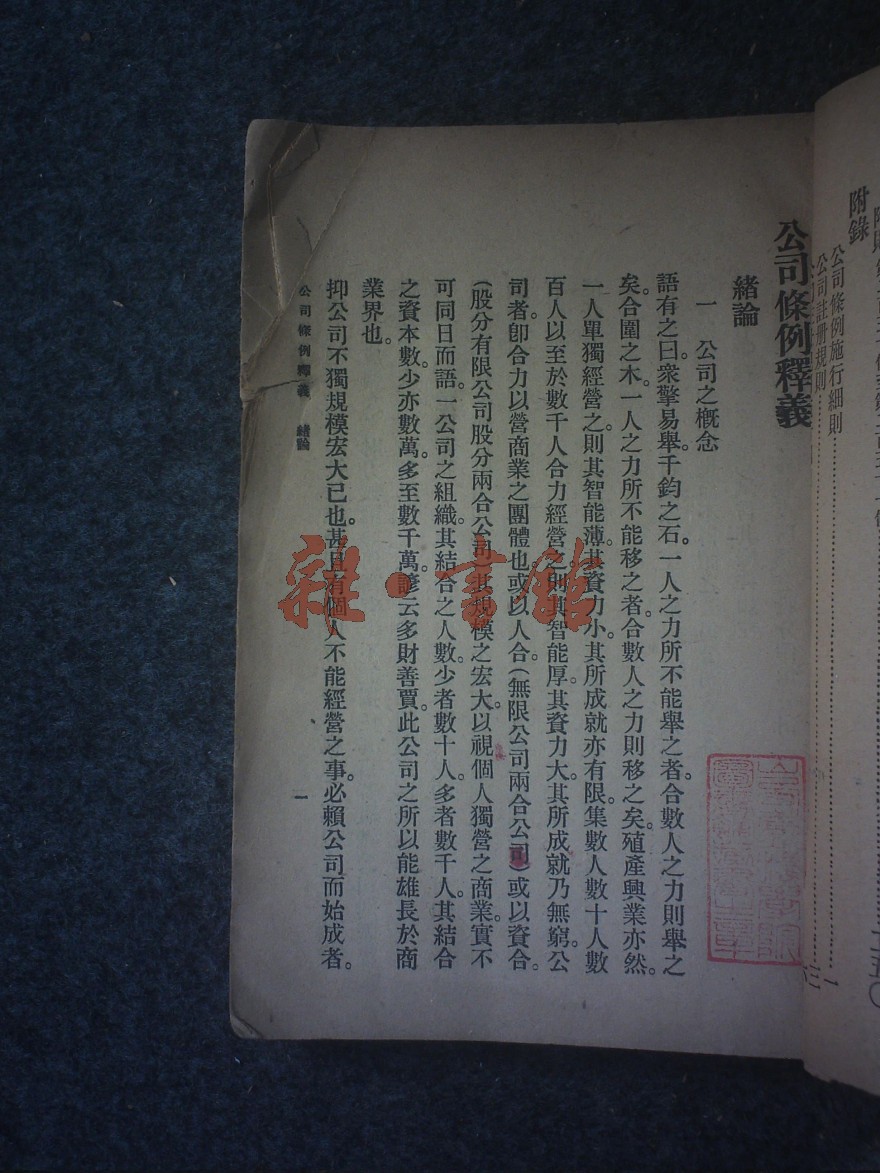 附錄
公司條例施行細則……一
公司註册規則
公司條例釋義
緒論
一　公司之概念
語有之曰。衆擎易舉。千鈞之石。一人之力所不能舉之者。合數人之力則舉之
矣。合圍之木。一人之力所不能移之者。合數人之力則移之矣。殖產興業亦然。
一人單獨經營之。則其智能薄。其資力小。其所成就亦有限。集數人數十人數
百人以至於數千人合力經營之。則其智能厚。其資力大。其所成就乃無窮。公
司者。卽合力以營商業之團體也。或以人合。(無限公司兩合公司)或以資合。
(股分有限公司股分兩合公司)其規模之宏大。以視個人獨營之商業。實不
可同日而語。一公司之組織。其結合之人數。少者數十人。多者數千人。其結合
之資本數。少亦數萬。多至數千萬。諺云多財善賈。此公司之所以能雄長於商
業界也。
抑公司不獨規模宏大已也。甚且有個人不能經營之事。必賴公司而始成者。
公司條例釋義　緒論
一
雜·書館